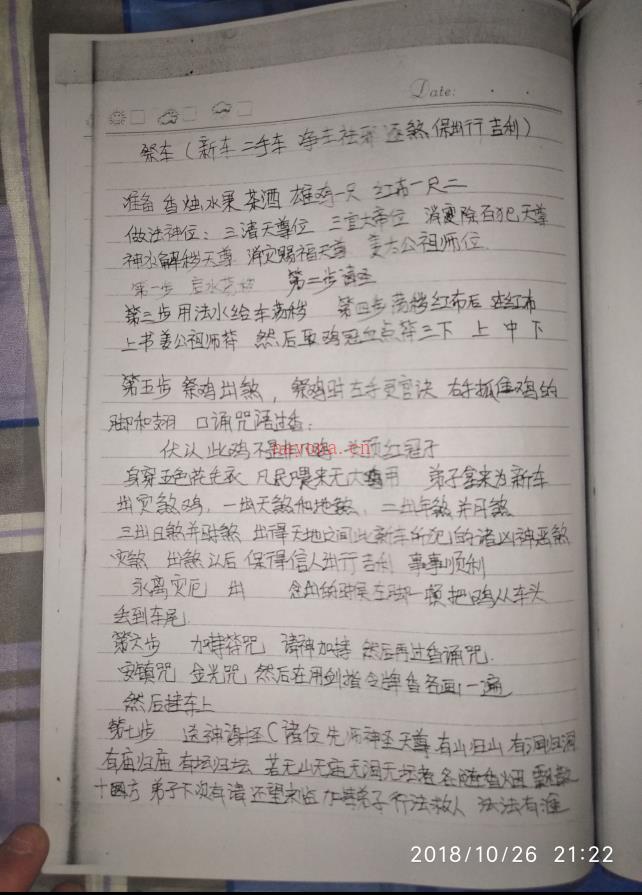 Date:
祭车（新车 二手车 净车祛邪 逐煞 保出行 吉利）
准备 香烛 水果 茶酒 雄鸡一只 红布一尺二
做法神位：三清天尊位 三官大帝位 消灾除百犯天尊
神水解秽天尊 消灾赐福天尊 姜太公祖师位
第一步 启水荡秽 第二步请圣
第三步用法水给车荡秽 第四步荡秽红布后 在红布
上书姜公祖师符 然后取鸡冠血点符三下 上 中 下
第五步 祭鸡出煞，祭鸡时左手 右手抓住鸡的
脚和翅 口诵咒语过香：
伏认此鸡不是非凡鸡 头顶红冠子
身穿五色花毛衣 凡民喂来无大用 弟子拿来为新车
出灾煞鸡，一出天煞和地煞，二出年煞并月煞
三出日煞并时煞 出得天地之间此新车所犯的诸凶神恶煞
灾煞 出煞以后 保得信人出行吉利 事事顺利
永离灾厄 出 念出的时候左脚一顿把鸡从车头
丢到车尾
第六步 加持符咒 请神加持 然后再过香诵咒.
安镇咒 金光咒 然后在用剑指令牌香各画一遍
然后挂车上
第七步 送神 （诸位先师神圣天尊 有山归山 有洞归洞
有庙归庙 有坛归坛 若无山无庙无洞无坛者 各随香烟 飘散
十四方 弟子下次有请 还望来临 加持弟子行法救人 法法有准
naryoga.cn
2018/10/26 21:22